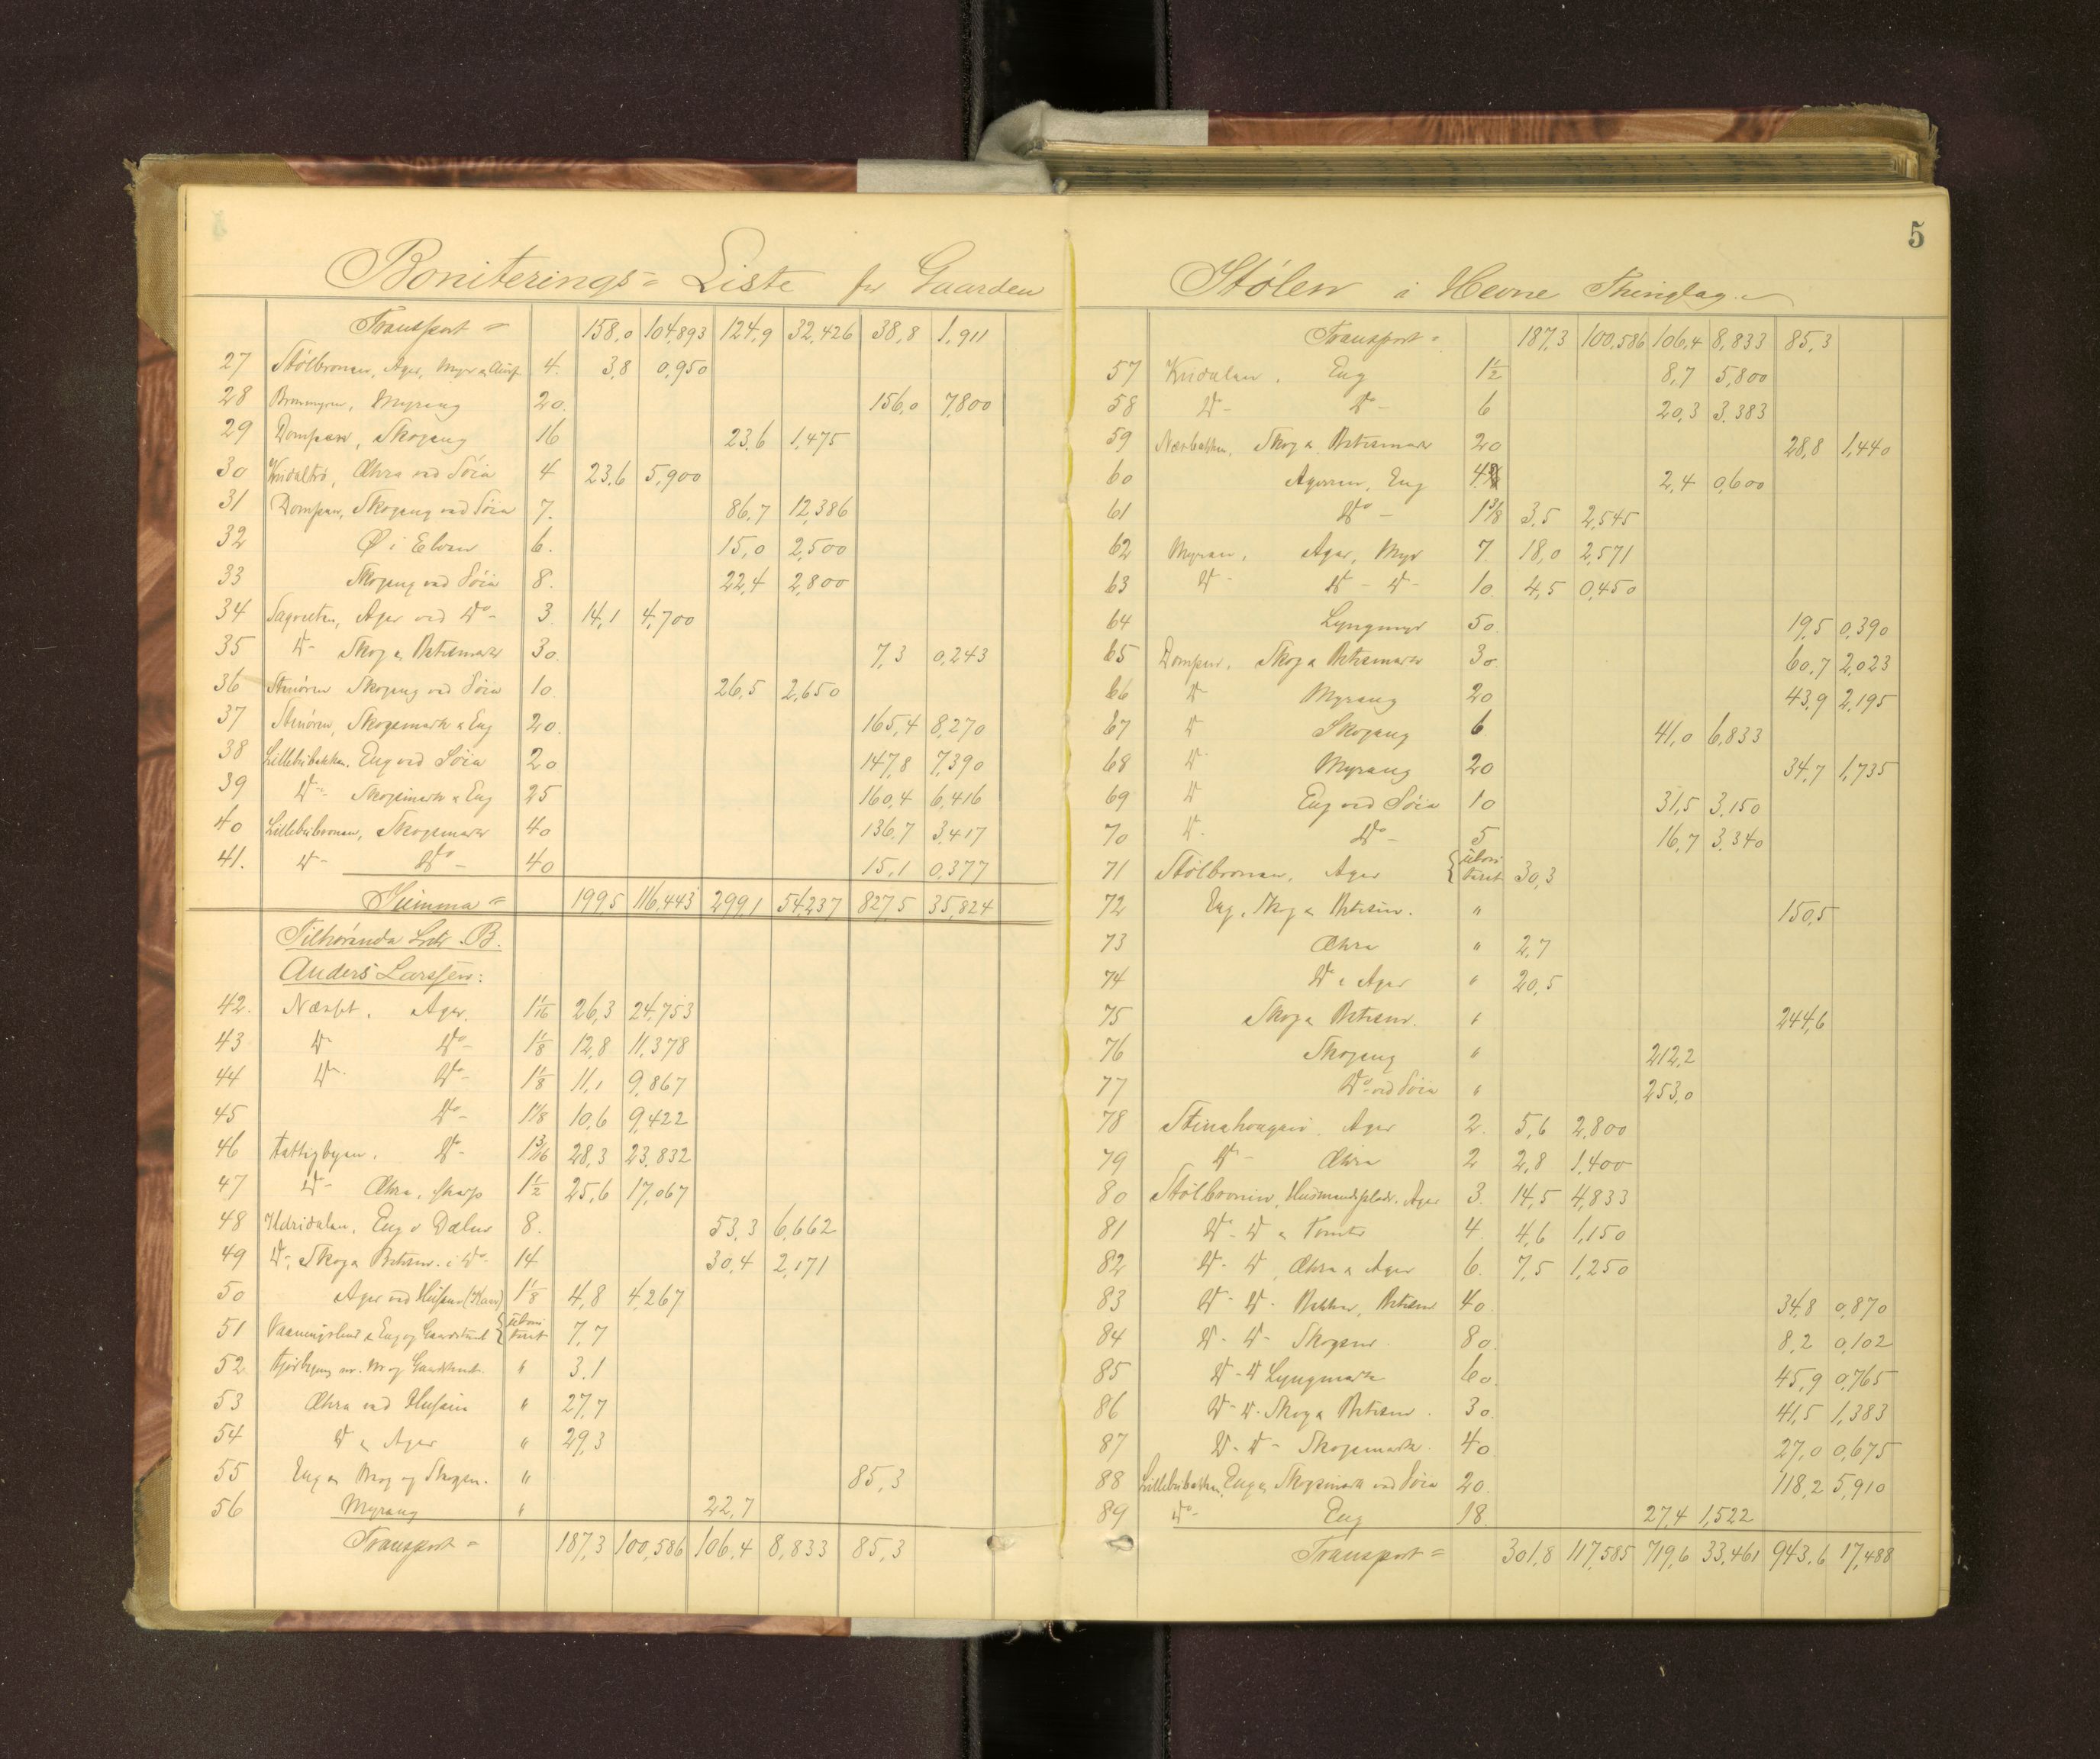 5
Boniterings = Liste for Gaarden Stølen i Hevne Thinglag.
Transport = 158,0 104,893 124,9 32,426 38,8 1,911
27 Stølbronen, Ager, Myr 4. 3,8 0,950
28 Myreng 20. 156,0 7,800
29 Dompen, Skogeng 16 23,6 1,475
30 Æhra ved Søia 4 23,6 5,900
31 Dompen, Skogeng ved Søia 7. 86,7 12,386
32 Ø i Elven 6. 15,0 2,500
33 Skogeng ved Søia 8. 22,4 2,800
34 Ager ved Do - 3. 14,1 4,700
35 Do - Skog & Betesmark 30. 7,3 0,243
36 Skogeng ved Søia 10. 26,5 2,650
37 Skogsmark & Eng 20. 165,4 8,270
38 Lillebubakken, Eng ved Søia 20 147,8 7,390
39 Do - Skogsmark & Eng 25 160,4 6,416
40 Lillebubronen, Skogsmark 40 136,7 3,417
41. Do - Do - 40 15,1 0,377
Summa = 199,5 116,443 299,1 54,237 827,5 35,824
Tilhørende Litr. B.
Anders Larssen:
42. Næsset, Ager. 1 1/16 26,3 24,753
43 Do Do - 1 1/8 12,8 11,378
44 Do - Do - 1 1/8 11,1 9,867
45 Do - 1 1/8 10,6 9,422
46 Do - 1 3/16 28,3 23,832
47 Do - Æhra, skarp 1 1/2 25,6 17,067
48 Eng i Dælen 8. 53,3 6,662
49 Do, Skog & Betesm. i Do 14 30,4 2,171
50 Ager ved Husene 1 1/8 4,8 4,267
51 uboniteret 7,7
52 " 3,1
53 Æhra ved Husene " 27,7
54 Do & Ager " 29,3
55 Eng & Skogsm. " 85,3
56 Myreng " 22,7
Transport = 187,3 100,586 106,4 8,833 85,3
Transport = 187,3 100,586 106,4 8,833 85,3
57 Eng 1 1/2 8,7 5,800
58 Do - Do - 6 20,3 3,383
59 Næsbakken, Skog & Betesmark 20 28,8 1,440
60 Ageren, Eng 4 2,4 0,600
61 Do - 1 3/8 3,5 2,545
62 Myran, Ager, Myr 7. 18,0 2,571
63 Do - Do - Do - 10 4,5 0,450
64 Lyngmyr 50 19,5 0,390
65 Dompen, Skog & Betesmark 30. 60,7 2,023
66 Do Myreng 20 43,9 2,195
67 Do Skogeng 6. 41,0 6,833
68 Do Myreng 20 34,7 1,735
69 Do Eng ved Søia 10 31,5 3,150
70 Do Do - 5 16,7 3,340
71 Stølbronen, Ager uboniteret 30,3
72 Eng, Skog & Betesm. " 150,5
73 Æhra " 2,7
74 Do & Ager " 20,5
75 Skog & Betesm. " 244,6
76 Skogeng " 212,2
77 Do ved Søia " 253,0
78 Ager 2. 5,6 2,800
79 Do - Æhra 2 2,8 1,400
80 Stølbronen, Husmandsplads, Ager 3. 14,5 4,833
81 Do - Do & Tomter 4. 4,6 1,150
82 Do - Do, Æhra & Ager 6. 7,5 1,250
83 Do - Do - Bakker, Betesm 40. 34,8 0,870
84 Do - Do - Skogsm. 80. 8,2 0,102
85 Do - Do Lyngmark 60. 45,9 0,765
86 Do - Do - Skog & Betesm. 30. 41,5 1,383
87 Do - Do - Skogsmark. 40 27,0 0,675
88 Lillebubakken, Eng & Skogsmark ved Søia 20. 118,2 5,910
89 Do - Eng 18. 27,4 1,522
Transport = 301,8 117,585 719,6 33,461 943,6 17,488